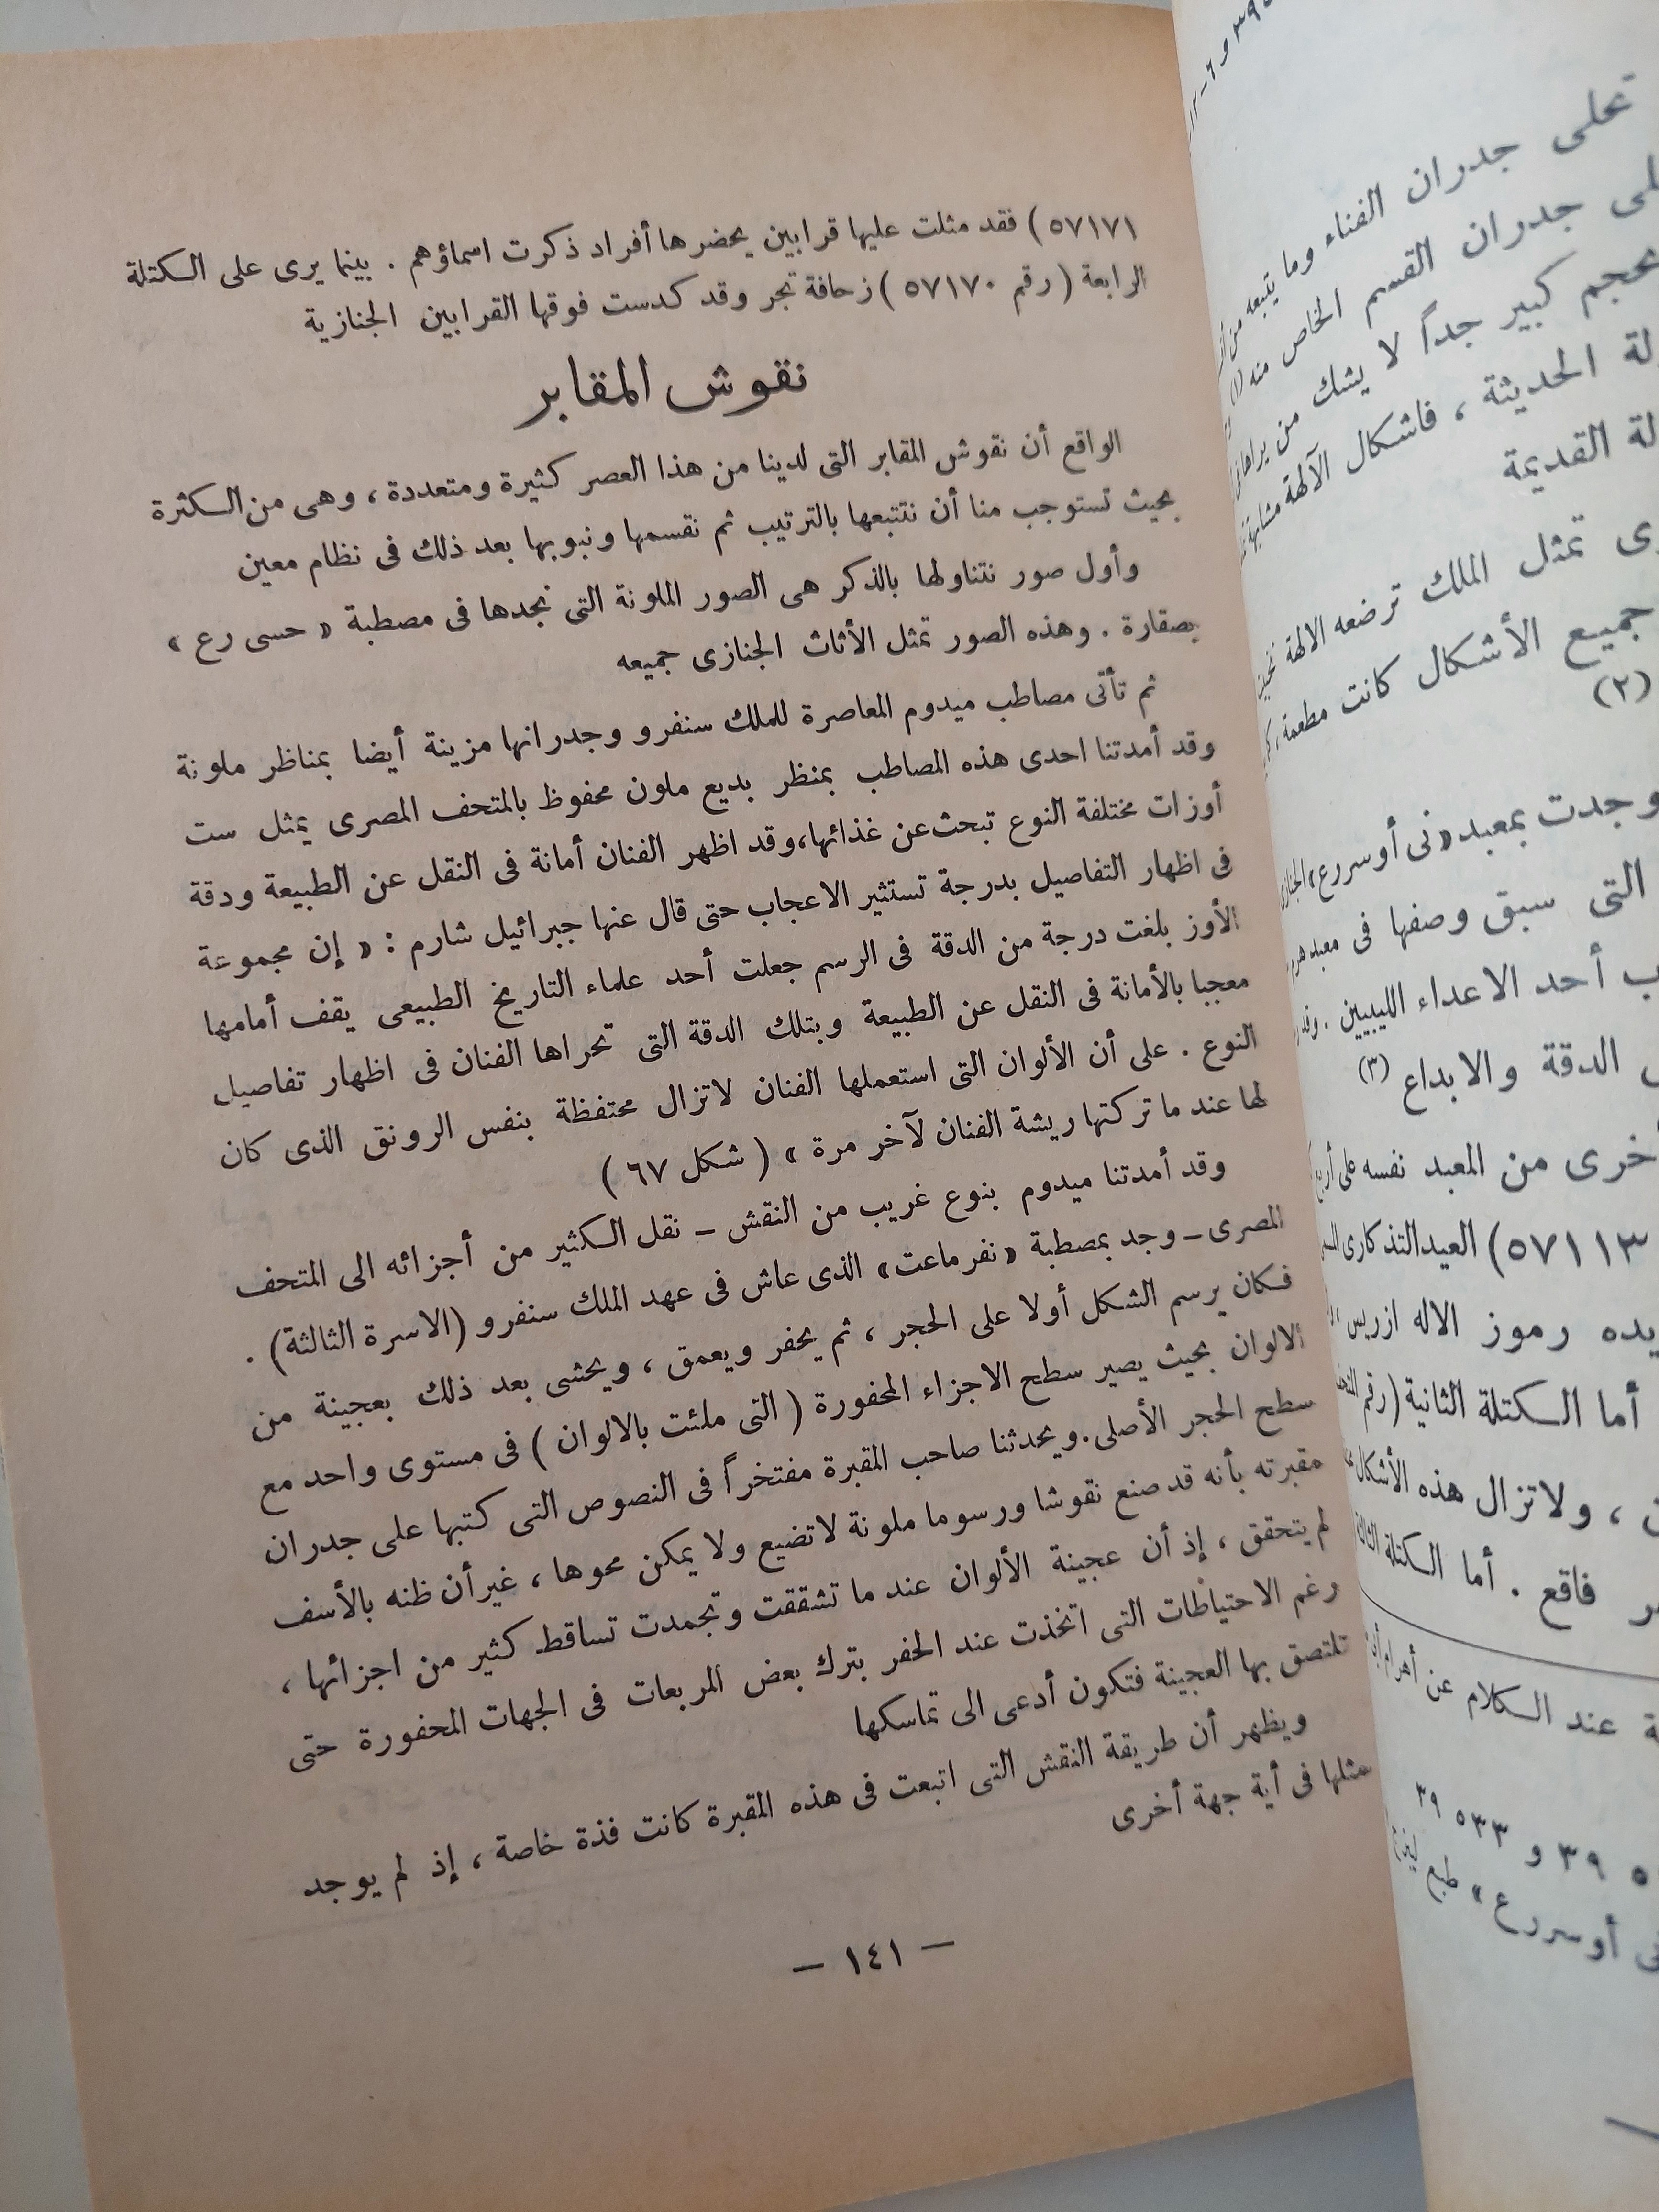 ٥٧١٧١) فقد مثلت عليها قرابين يحضرها أفراد ذكرت اسماؤهم . بينما يرى على الكتلة
الرابعة (رقم ٥٧١٧٠) زحافة تجر وقد كدست فوقها القرابين الجنازية
نقوش المقابر
الواقع أن نقوش المقابر التى لدينا من هذا العصر كثيرة ومتعددة ، وهى من الكثرة
بحيث تستوجب منا أن نتتبعها بالترتيب ثم نقسمها ونبوبها بعد ذلك فى نظام معين
وأول صور نتناولها بالذكر هى الصور الملونة التى نجدها فى مصطبة « حسى رع »
بصقارة . وهذه الصور تمثل الأثاث الجنازى جميعه
ثم تأتى مصاطب ميدوم المعاصرة للملك سنفرو وجدرانها مزينة أيضا بمناظر ملونة
وقد أمدتنا احدى هذه المصاطب بمنظر بديع ملون محفوظ بالمتحف المصرى يمثل ست
أوزات مختلفة النوع تبحث عن غذائها، وقد اظهر الفنان أمانة فى النقل عن الطبيعة ودقة
فى اظهار التفاصيل بدرجة تستثير الاعجاب حتى قال عنها جبرائيل شارم : « إن مجموعة
الأوز بلغت درجة من الدقة فى الرسم جعلت أحد علماء التاريخ الطبيعى يقف أمامها
معجبا بالأمانة فى النقل عن الطبيعة وبتلك الدقة التى تحراها الفنان فى اظهار تفاصيل
النوع . على أن الألوان التى استعملها الفنان لاتزال محتفظة بنفس الرونق الذى كان
لها عند ما تركتها ريشة الفنان لآخر مرة » ( شكل ٦٧ )
وقد أمدتنا ميدوم بنوع غريب من النقش – نقل الكثير من أجزائه الى المتحف
المصرى – وجد بمصطبة «نفرماعت» الذى عاش فى عهد الملك سنفرو (الاسرة الثالثة) .
فكان يرسم الشكل أولا على الحجر ، ثم يحفر ويعمق ، ويحشى بعد ذلك بعجينة من
الالوان بحيث يصير سطح الاجزاء المحفورة ( التى ملئت بالالوان ) فى مستوى واحد مع
سطح الحجر الأصلى. ويحدثنا صاحب المقبرة مفتخراً فى النصوص التى كتبها على جدران
مقبرته بأنه قد صنع نقوشا ورسوما ملونة لاتضيع ولا يمكن محوها ، غير أن ظنه بالأسف
لم يتحقق ، إذ أن عجينة الألوان عند ما تشققت وتجمدت تساقط كثير من اجزائها ،
رغم الاحتياطات التى اتخذت عند الحفر بترك بعض المربعات فى الجهات المحفورة حتى
تلتصق بها العجينة فتكون أدعى الى تماسكها
ويظهر أن طريقة النقش التى اتبعت فى هذه المقبرة كانت فذة خاصة ، إذ لم يوجد
مثلها فى أية جهة أخرى
– ١٤١ –
على جدران الفناء وما يتبعه من
جدران القسم الخاص منه (١)
بحجم كبير جداً لا يشك من يراها
الحديثة ، فاشكال الآلهة مشابهة
القديمة
تمثل الملك ترضعه الالهة
جميع الأشكال كانت مطعمة
(٢)
وجدت بمعبد « نى أوسررع » الجنازى
التى سبق وصفها فى معبد
أحد الاعداء الليبيين .
الدقة والابداع (٣)
من المعبد نفسه على
٥٧١١٣) العيد التذكارى
رموز الاله ازريس
أما الكتلة الثانية (رقم
، ولاتزال هذه الأشكال
فاقع . أما الكتلة
عند الكلام عن أهرام
٣٩ و ٥٣٣ ٣٩
أوسررع » طبع